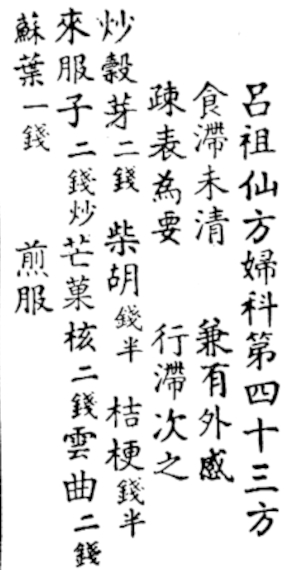 呂祖仙方婦科第四十三方
食滯未清　兼有外感
疎表為要　行滯次之
炒穀芽二錢　柴胡錢半　桔梗錢半
來服子二錢炒芒菓核二錢雲曲二錢
蘇葉一錢　煎服